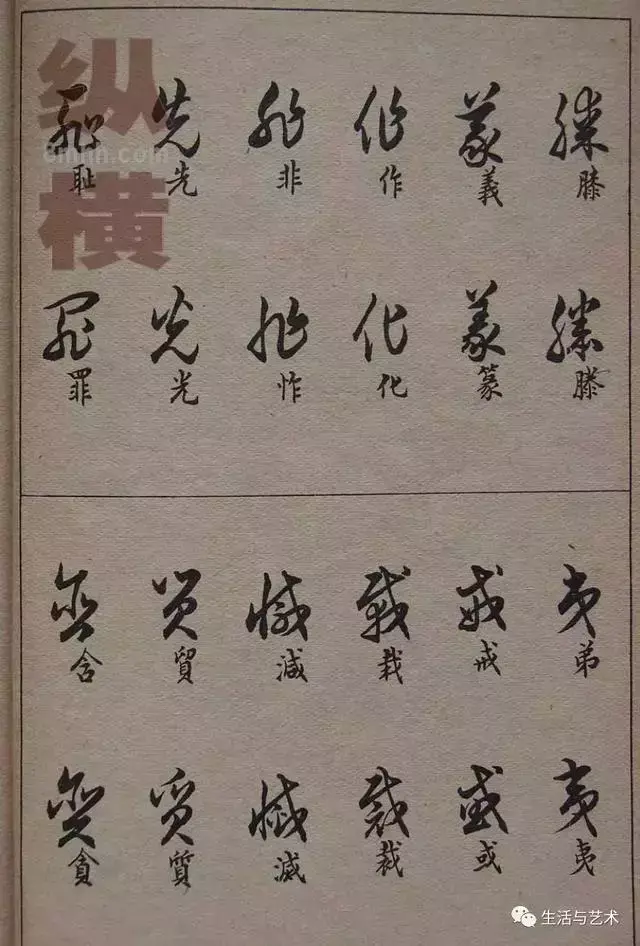 纵横
膝 義 作 非 先 耻
滕 篆 化 怍 光 罪
弟 戒 栽 減 貿 含
夷 或 裁 滅 質 貪
生活与艺术